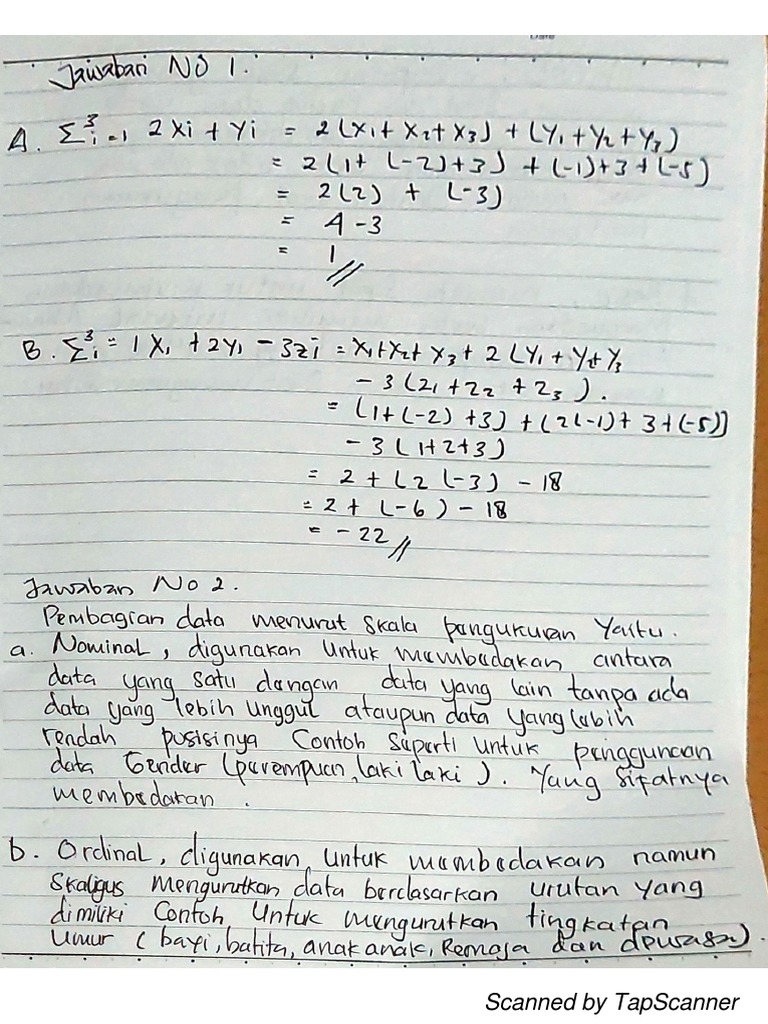 Jawaban NO 1.
A. Σ³i=1 2Xi + Yi = 2(X1 + X2 + X3) + (Y1 + Y2 + Y3)
= 2(1 + (-2) + 3) + (-1) + 3 + (-5)
= 2(2) + (-3)
= 4 - 3
= 1 //
B. Σ³i = 1 X1 + 2Y1 - 3zi = X1 + X2 + X3 + 2 (Y1 + Y2 + Y3
- 3 (Z1 + Z2 + Z3).
= (1 + (-2) + 3) + (2(-1) + 3 + (-5)]
- 3 (1+2+3)
= 2 + (2 (-3) - 18
= 2 + (-6) - 18
= - 22 //
Jawaban No 2.
Pembagian data menurut skala pengukuran Yaitu.
a. Nominal, digunakan Untuk membedakan antara
data yang satu dengan data yang lain tanpa ada
data yang lebih unggul ataupun data yang lebih
rendah pusisinya Contoh Seperti Untuk penggunaan
data Gender (perempuan, laki laki). Yang Sifatnya
membedakan.
b. Ordinal, digunakan Untuk membedakan namun
Skaligus Mengurutkan data berdasarkan urutan yang
dimiliki Contoh Untuk mengurutkan tingkatan
Umur (bayi, batita, anak anak, Remaja dan dewasa).
Scanned by TapScanner